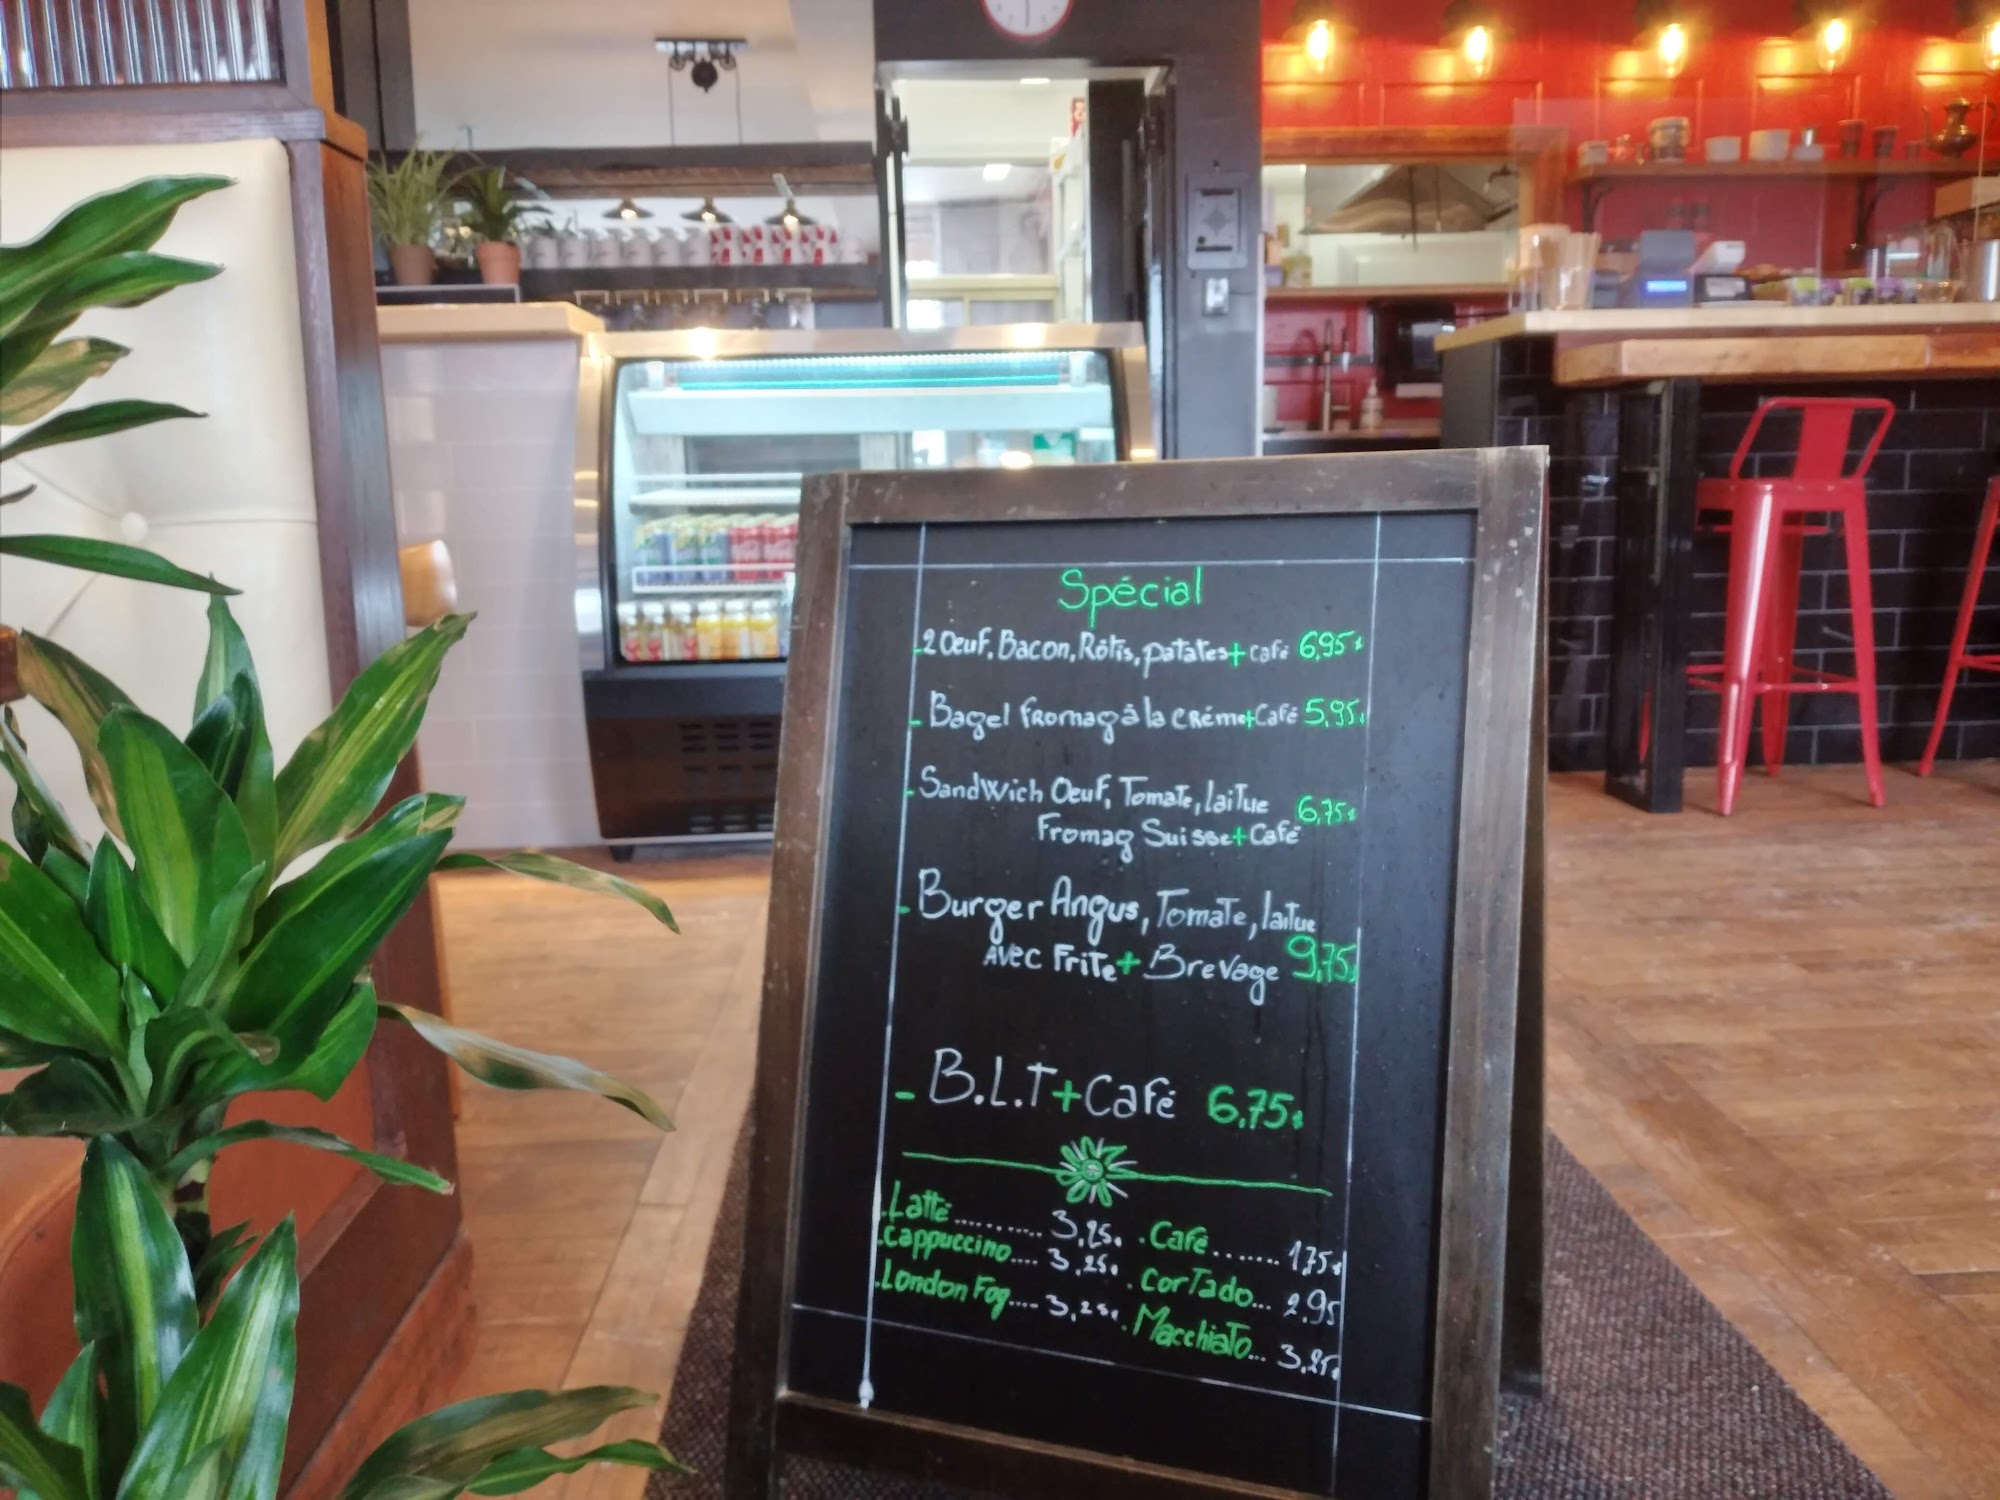 Spécial
- 2 Oeuf, Bacon, Rôtis, patates + café 6,95$
- Bagel Fromag à la créme + Café 5,95$
- Sandwich Oeuf, Tomate, laitue 6,75$
Fromag Suisse + Café
- Burger Angus, Tomate, laitue
avec Frite + Brevage 9,75$
- B.L.T + Café 6,75$
. Latte .......... 3,25$ . Café ....... 1,75$
. Cappuccino .... 3,25$ . Cortado ... 2,95
. London Fog .... 3,25$ . Macchiato ... 3,25$